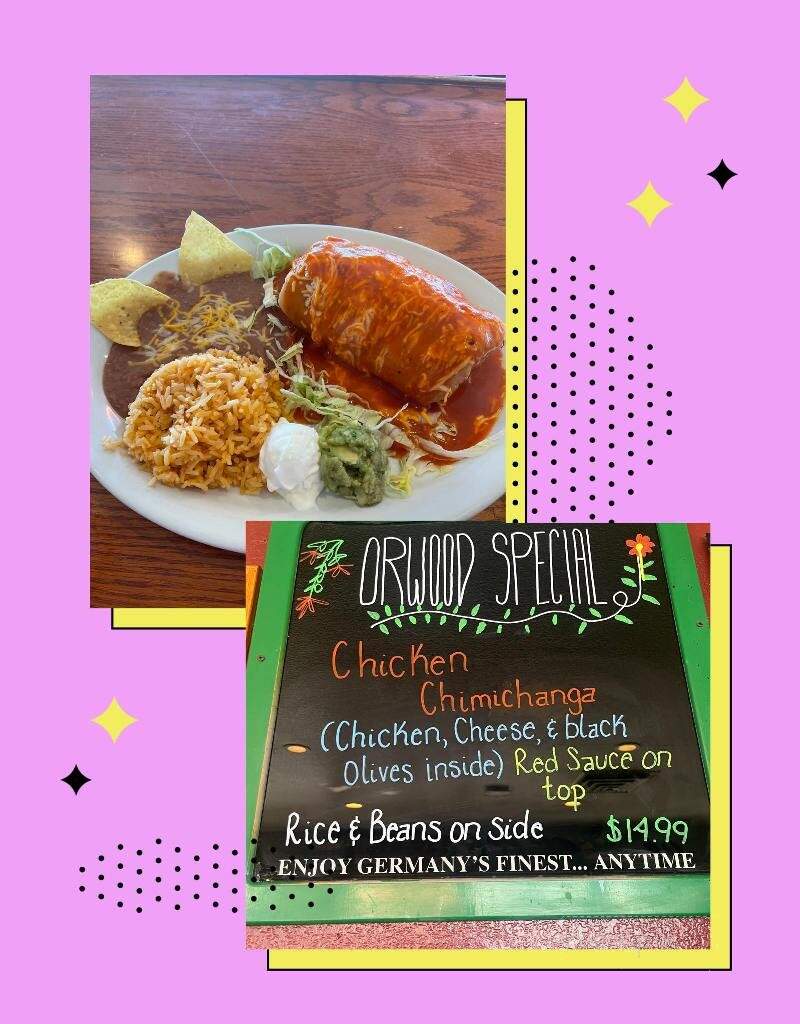 ORWOOD SPECIAL
Chicken
Chimichanga
(Chicken, Cheese, & black
Olives inside) Red Sauce on
top
Rice & Beans on side $14.99
ENJOY GERMANY'S FINEST... ANYTIME